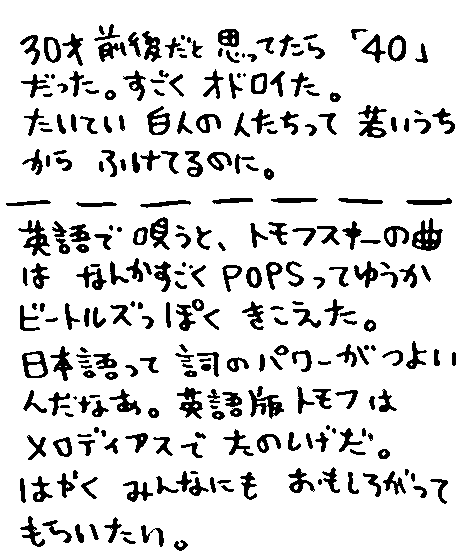 30才前後だと思ってたら「40」
だった。すごくオドロイた。
たいてい白人の人たちって若いうち
からふけてるのに。
英語で唄うと、トモフスキーの曲
はなんかすごくPOPSってゆうか
ビートルズっぽくきこえた。
日本語って詞のパワーがつよい
んだなぁ。英語版トモフは
メロディアスでたのしげだ。
はやくみんなにもおもしろがって
もらいたい。